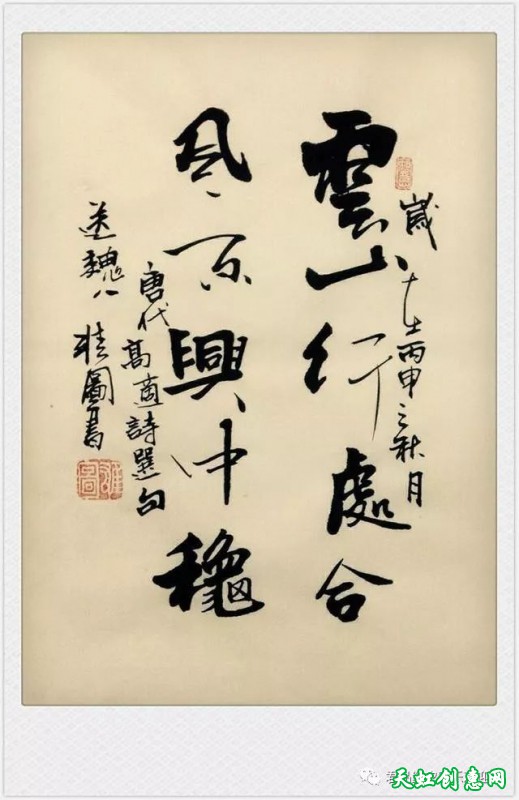 歲在丙申之秋月
雲山行處合
風雨興中穐
唐代高適詩選句
送魏八 桂圖書
天虹创意网